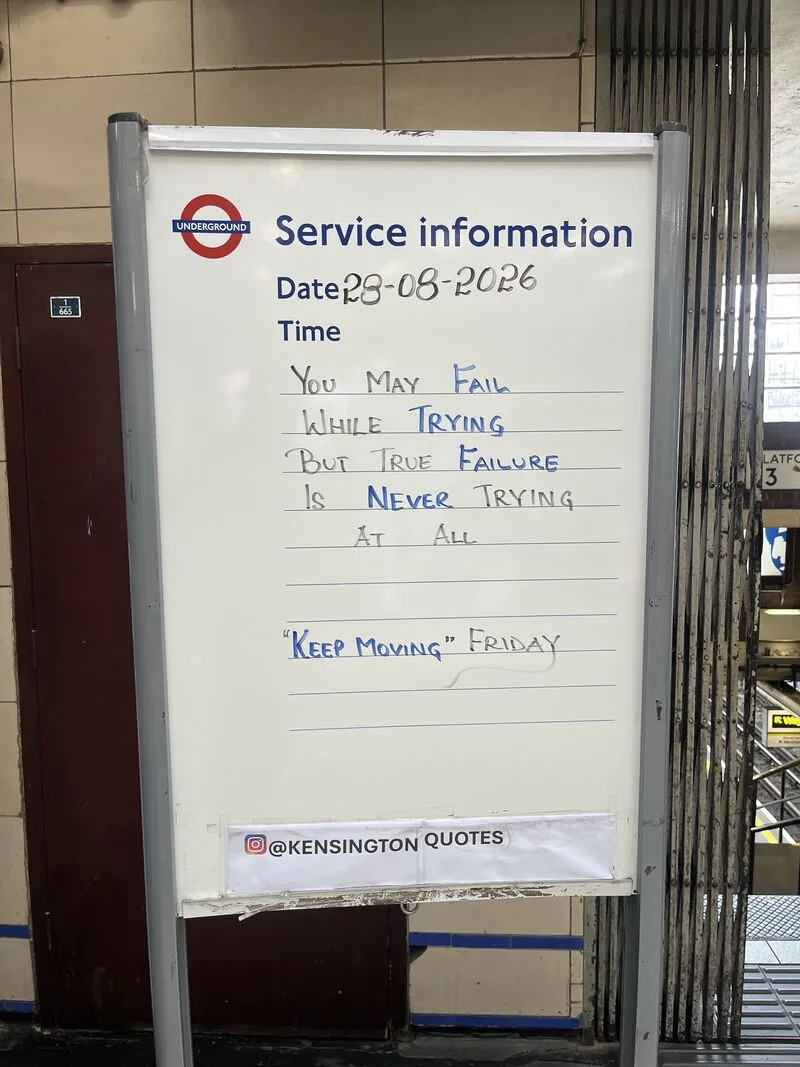 UNDERGROUND
Service information
Date 28-08-2026
Time
1
665
YOU MAY FAIL
WHILE TRYING
BUT TRUE FAILURE
IS NEVER TRYING
AT ALL
"KEEP MOVING" FRIDAY
@KENSINGTON QUOTES
3